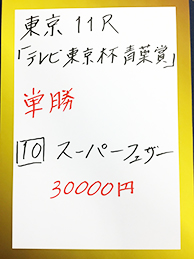 東京 11R
「テレビ東京杯青葉賞」
単勝
10 スーパーフェザー
30000円